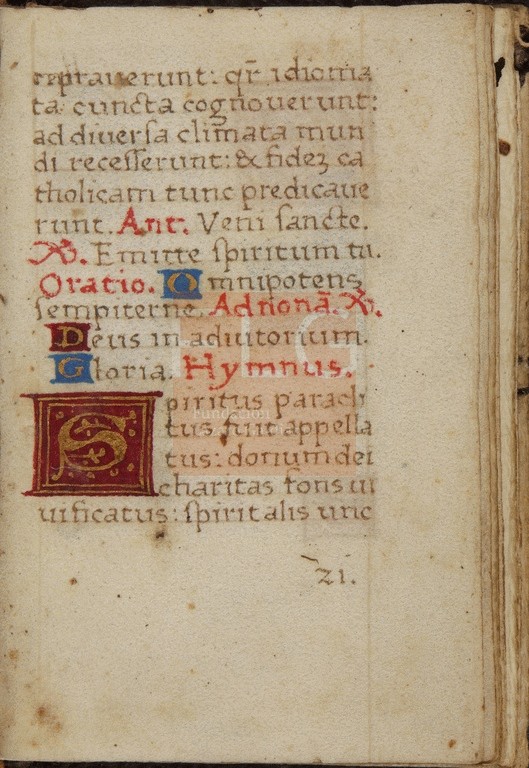 repraverunt: qr̃ idioma
ta cuncta cognoverunt:
ad diversa climata mun
di recesserunt: & fidez ca
tholicam tunc predicave
runt. Ant. Veni sancte.
℟. Emitte spiritum tu.
Oratio. Omnipotens
sempiterne. Ad nonã. ℟.
Deus in adiutorium.
Gloria. Hymnus.
Spiritus paracli
tus fuit appella
tus: donum dei
charitas fons vi
vificatus: spiritalis unc
21.